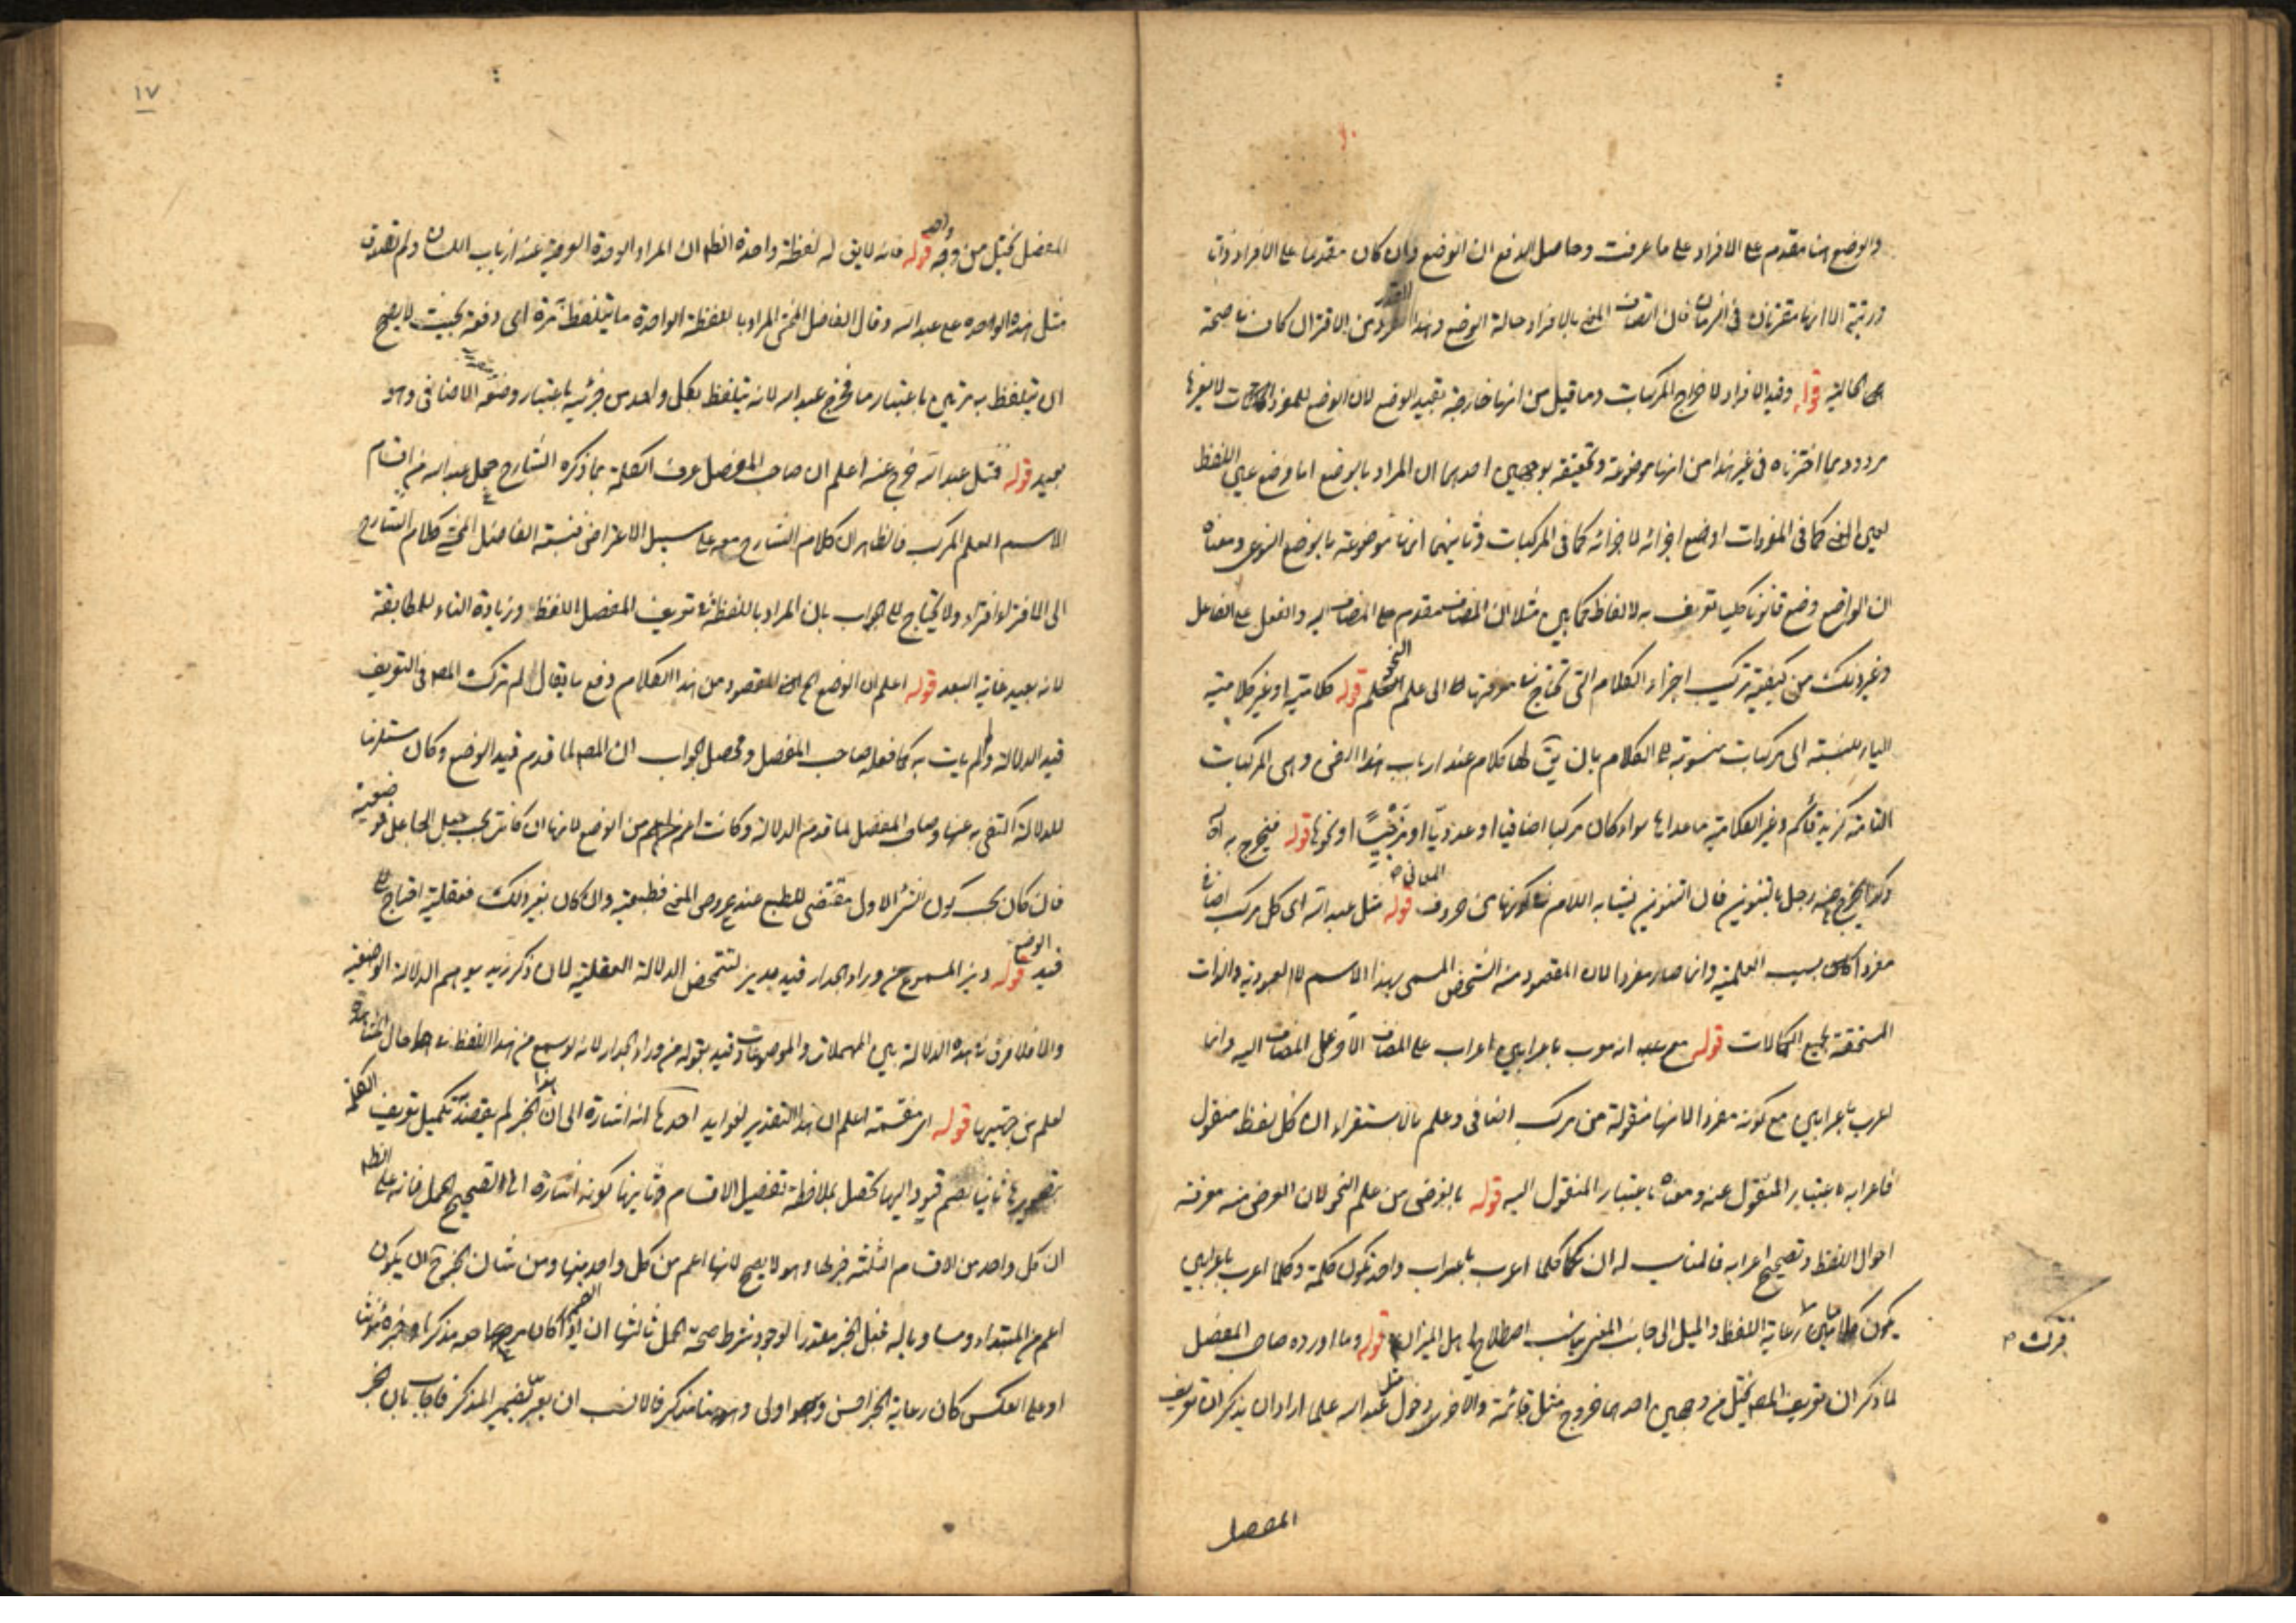 والوضع هنا مقدم على الافراد على ما عرفت وحاصل الدفع ان الوضع وان كان مقدما على الافراد ذاتا
ورتبة الا انهما مقترنان فى الزمان فان اتصاف المعنى بالافراد حالة الوضع وهذا القدر من الاقتران كاف فى صحة
الحالية قوله وقيد الافراد لاخراج المركبات وما قيل من انها خارجة بقيد الوضع لان الوضع للمفردات لا لغيرها
مردود بما اخترناه فى غير هذا من انها موضوعة وتحقيقه بوجهين احدهما ان المراد بالوضع اما وضع عين اللفظ
لعين المعنى كما فى المفردات او وضع اجزائه لاجزائه كما فى المركبات وثانيهما انها موضوعة بالوضع النوعى ومعناه
ان الواضع وضع قانونا كليا تعرف به الالفاظ كما بين مثلا ان المضاف مقدم على المضاف اليه والفعل على الفاعل
وغير ذلك من كيفية تركيب اجزاء الكلام التى تحتاج فى معرفتها الى علم النحو قوله كلامية او غير كلامية
الياء للنسبة الى مركبات منسوبة الى الكلام بان يق لها كلام عند ارباب هذا الفن وهى المركبات
التامة كزيد قائم وغير الكلامية ما عداها سواء كان مركبا اضافيا او عدديا او مزجيا او نحوها قوله فيخرج به
وكذا يخرج عنه رجل بالتنوين فان التنوين يشابه اللام فى كونها من حروف المعانى قوله مثل عبد الله اى كل مركب اضافى
مفردا بسبب العلمية وانما صار مفردا لان المقصود منه الشخص المسمى بهذا الاسم لا العبودية والذات
المستحقة لجميع الكمالات قوله مع علم انه معرب باعرابين اعراب على المضاف الاول وعلى المضاف اليه وانما
اعرب باعرابين مع كونه مفردا لانها منقولة من مركب اضافى وعلم بالاستقراء ان كل لفظ منقول
فاعرابه باعتبار المنقول عنه ومعناه باعتبار المنقول اليه قوله بالغرض من علم النحو لان الغرض منه معرفة
احوال اللفظ وتصحيح اعرابه فالمناسب له ان كلما اعرب باعراب واحد تكون كلمة وكلما اعرب باعرابين
يكون كلمتين رعاية اللفظ والميل الى جانب المعنى يناسب اصطلاح اهل الميزان قوله وما اورده صاحب المفصل
لما ذكر ان تعريف المص يختل من وجهين احدهما خروج مثل قائمة والاخر دخول مثل عبد الله علما اراد ان يذكر ان تعريف
المفصل
١٧
المفصل يختل من وجه واحد قوله فانه لا يق له لفظة واحدة الظ ان المراد الوحدة العرفية عند ارباب اللسان ولم تصدق
مثل هذه الواحدة على عبد الله وقال الفاضل المحشى المراد باللفظة الواحدة ما يتلفظ مرة اى دفعة بحيث لا يصح
ان يتلفظ به مرتين باعتبار ما فخرج عبد الله لانه يتلفظ بكل واحد من جزئيه باعتبار وضعه الاضافى وهو
بعيد قوله فمثل عبد الله خرج عنه اعلم ان صاحب المفصل عرف الكلمة بما ذكره الشارح وجعل عبد الله من اقسام
الاسم العلم المركب فالظاهر ان كلام الشارح معه على سبيل الاعتراض فنسبة الفاضل المحشى كلام الشارح
الى الافتراء افتراء ولا يحتاج الى الجواب بان المراد باللفظة فى تعريف المفصل اللفظ وزيادة التاء للمطابقة
لانه بعيد غاية البعد قوله اعلم ان الوضع الخ المقصود من هذا الكلام دفع ما يقال لم ترك المص فى التعريف
قيد الدلالة ولم يات به كما فعله صاحب المفصل ومحصل الجواب ان المص لما قدم قيد الوضع وكان مستلزما
للدلالة اكتفى به عنها وصاحب المفصل لما قدم الدلالة وكانت اعم من الوضع لانها ان كانت بجعل الجاعل فوضعية
فان كان بحسب كون الشئ الاول مقتضى للطبع عند عروض المعنى فطبيعية وان كان بغير ذلك فعقلية احتاج الى
قيد الوضع قوله ديز المسموع من وراء الجدار قيد بديز لتتمحض الدلالة العقلية لان ذكر زيد يوهم الدلالة الوضعية
والا فلا فرق فى هذه الدلالة بين المهملات والموضوعات وقيد بقوله من وراء الجدار لانه لو سمع من هذا اللفظ حال المشاهدة
لعلم من جهتها قوله اى مقسمة اعلم ان هذا التقدير لفوايد احدها انه اشارة الى ان هذا الخبر لم يقصد تكميل تعريف الكلمة
بتصويرها ثانيا بضم قيود اليها تحصل بملاحظة تفصيل الاقسام وثانيها كونه اشارة الى تصحيح الحمل فانه على الظ
ان كل واحد من الاقسام الثلثة خبر لها وهو لا يصح لانها اعم من كل واحد منها ومن شان الخبر ان يكون
اعم من المبتداء ومساويا له فجعل الخبر مقدرا لوجود شرط صحة الحمل ثالثها ان الضمير اذا كان مرجعه مذكرا وخبره مؤنث
او على العكس كان رعاية الخبر احسن واولى وههنا مذكر فالانسب ان يعبر بضمير المذكر فاجاب بان الخبر